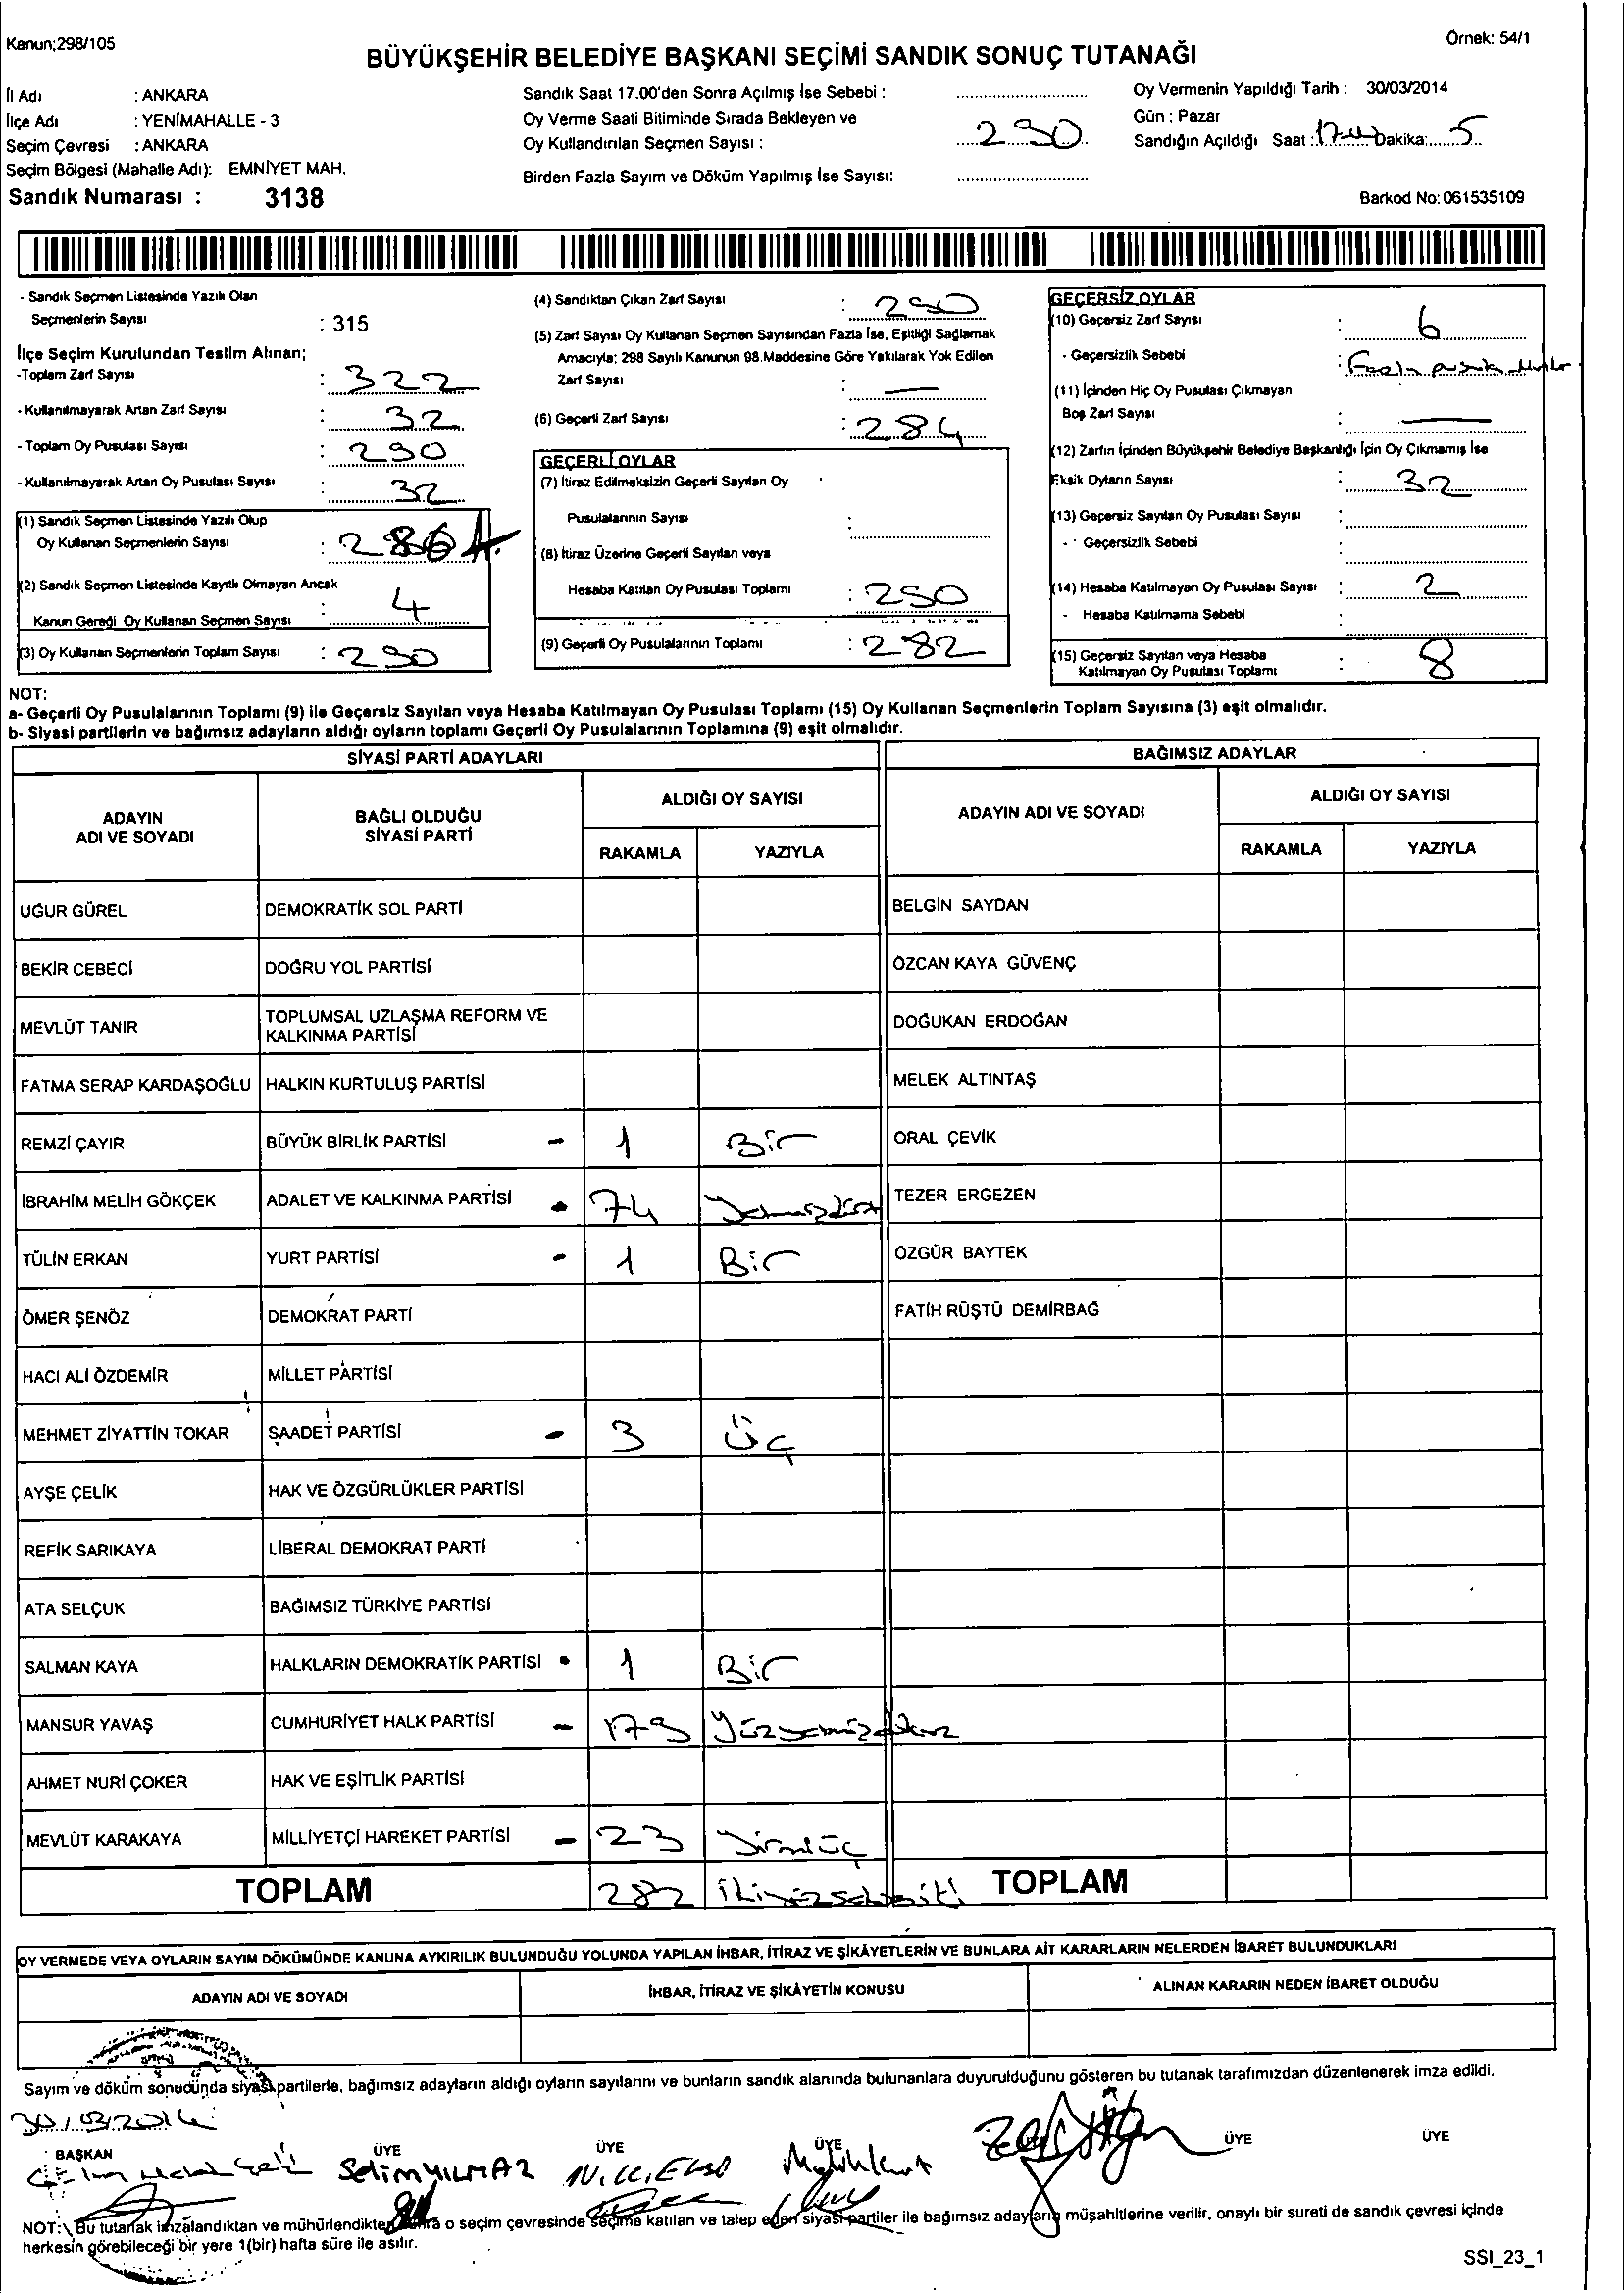 Kanun;298/105
Örnek: 54/1
BÜYÜKŞEHİR BELEDİYE BAŞKANI SEÇİMİ SANDIK SONUÇ TUTANAĞI
İl Adı : ANKARA
İlçe Adı : YENİMAHALLE - 3
Seçim Çevresi : ANKARA
Seçim Bölgesi (Mahalle Adı): EMNİYET MAH.
Sandık Numarası : 3138
Sandık Saat 17.00'den Sonra Açılmış İse Sebebi :
Oy Verme Saati Bitiminde Sırada Bekleyen ve
Oy Kullandırılan Seçmen Sayısı : 290
Birden Fazla Sayım ve Döküm Yapılmış İse Sayısı:
Oy Vermenin Yapıldığı Tarih : 30/03/2014
Gün : Pazar
Sandığın Açıldığı Saat : Dakika: 5
Barkod No: 061535109
- Sandık Seçmen Listesinde Yazılı Olan
Seçmenlerin Sayısı : 315
İlçe Seçim Kurulundan Teslim Alınan;
-Toplam Zarf Sayısı : 322
- Kullanılmayarak Artan Zarf Sayısı : 32
- Toplam Oy Pusulası Sayısı : 290
- Kullanılmayarak Artan Oy Pusulası Sayısı : 32
(1) Sandık Seçmen Listesinde Yazılı Olup
Oy Kullanan Seçmenlerin Sayısı : 286
(2) Sandık Seçmen Listesinde Kayıtlı Olmayan Ancak
Kanun Gereği Oy Kullanan Seçmen Sayısı : 4
(3) Oy Kullanan Seçmenlerin Toplam Sayısı : 290
(4) Sandıktan Çıkan Zarf Sayısı : 290
(5) Zarf Sayısı Oy Kullanan Seçmen Sayısından Fazla İse, Eşitliği Sağlamak
Amacıyla; 298 Sayılı Kanunun 98.Maddesine Göre Yakılarak Yok Edilen
Zarf Sayısı : —
(6) Geçerli Zarf Sayısı : 284
GEÇERLİ OYLAR
(7) İtiraz Edilmeksizin Geçerli Sayılan Oy
Pusulalarının Sayısı :
(8) İtiraz Üzerine Geçerli Sayılan veya
Hesaba Katılan Oy Pusulası Toplamı : 290
(9) Geçerli Oy Pusulalarının Toplamı : 282
GEÇERSİZ OYLAR
(10) Geçersiz Zarf Sayısı : 6
- Geçersizlik Sebebi : Fazla pusula
(11) İçinden Hiç Oy Pusulası Çıkmayan
Boş Zarf Sayısı : —
(12) Zarfın İçinden Büyükşehir Belediye Başkanlığı İçin Oy Çıkmamış İse
Eksik Oyların Sayısı : 32
(13) Geçersiz Sayılan Oy Pusulası Sayısı :
- Geçersizlik Sebebi :
(14) Hesaba Katılmayan Oy Pusulası Sayısı : 2
- Hesaba Katılmama Sebebi :
(15) Geçersiz Sayılan veya Hesaba
Katılmayan Oy Pusulası Toplamı : 8
NOT:
a- Geçerli Oy Pusulalarının Toplamı (9) ile Geçersiz Sayılan veya Hesaba Katılmayan Oy Pusulası Toplamı (15) Oy Kullanan Seçmenlerin Toplam Sayısına (3) eşit olmalıdır.
b- Siyasi partilerin ve bağımsız adayların aldığı oyların toplamı Geçerli Oy Pusulalarının Toplamına (9) eşit olmalıdır.
SİYASİ PARTİ ADAYLARI
BAĞIMSIZ ADAYLAR
ADAYIN ADI VE SOYADI
BAĞLI OLDUĞU SİYASİ PARTİ
ALDIĞI OY SAYISI
RAKAMLA YAZIYLA
ADAYIN ADI VE SOYADI
ALDIĞI OY SAYISI
RAKAMLA YAZIYLA
UĞUR GÜREL DEMOKRATİK SOL PARTİ BELGİN SAYDAN
BEKİR CEBECİ DOĞRU YOL PARTİSİ ÖZCAN KAYA GÜVENÇ
MEVLÜT TANIR TOPLUMSAL UZLAŞMA REFORM VE KALKINMA PARTİSİ DOĞUKAN ERDOĞAN
FATMA SERAP KARDAŞOĞLU HALKIN KURTULUŞ PARTİSİ MELEK ALTINTAŞ
REMZİ ÇAYIR BÜYÜK BİRLİK PARTİSİ - 1 Bir ORAL ÇEVİK
İBRAHİM MELİH GÖKÇEK ADALET VE KALKINMA PARTİSİ - 74 Yetmişdört TEZER ERGEZEN
TÜLİN ERKAN YURT PARTİSİ - 1 Bir ÖZGÜR BAYTEK
ÖMER ŞENÖZ DEMOKRAT PARTİ FATİH RÜŞTÜ DEMİRBAĞ
HACI ALİ ÖZDEMİR MİLLET PARTİSİ
MEHMET ZİYATTİN TOKAR SAADET PARTİSİ - 3 Üç
AYŞE ÇELİK HAK VE ÖZGÜRLÜKLER PARTİSİ
REFİK SARIKAYA LİBERAL DEMOKRAT PARTİ
ATA SELÇUK BAĞIMSIZ TÜRKİYE PARTİSİ
SALMAN KAYA HALKLARIN DEMOKRATİK PARTİSİ - 1 Bir
MANSUR YAVAŞ CUMHURİYET HALK PARTİSİ - 179 Yüzyetmişdokuz
AHMET NURİ ÇOKER HAK VE EŞİTLİK PARTİSİ
MEVLÜT KARAKAYA MİLLİYETÇİ HAREKET PARTİSİ - 23 Yirmiüç
TOPLAM 282 ikiyüzsekseniki TOPLAM
OY VERMEDE VEYA OYLARIN SAYIM DÖKÜMÜNDE KANUNA AYKIRILIK BULUNDUĞU YOLUNDA YAPILAN İHBAR, İTİRAZ VE ŞİKÂYETLERİN VE BUNLARA AİT KARARLARIN NELERDEN İBARET BULUNDUKLARI
ADAYIN ADI VE SOYADI İHBAR, İTİRAZ VE ŞİKÂYETİN KONUSU ALINAN KARARIN NEDEN İBARET OLDUĞU
Sayım ve döküm sonucunda siyasi partilerle, bağımsız adayların aldığı oyların sayılarını ve bunların sandık alanında bulunanlara duyurulduğunu gösteren bu tutanak tarafımızdan düzenlenerek imza edildi.
30/03/2014
BAŞKAN ÜYE ÜYE ÜYE ÜYE ÜYE
Selim YILMAZ
NOT: Bu tutanak imzalandıktan ve mühürlendikten sonra o seçim çevresinde seçime katılan ve talep eden siyasi partiler ile bağımsız adayların müşahitlerine verilir, onaylı bir sureti de sandık çevresi içinde
herkesin görebileceği bir yere 1(bir) hafta süre ile asılır.
SSI_23_1